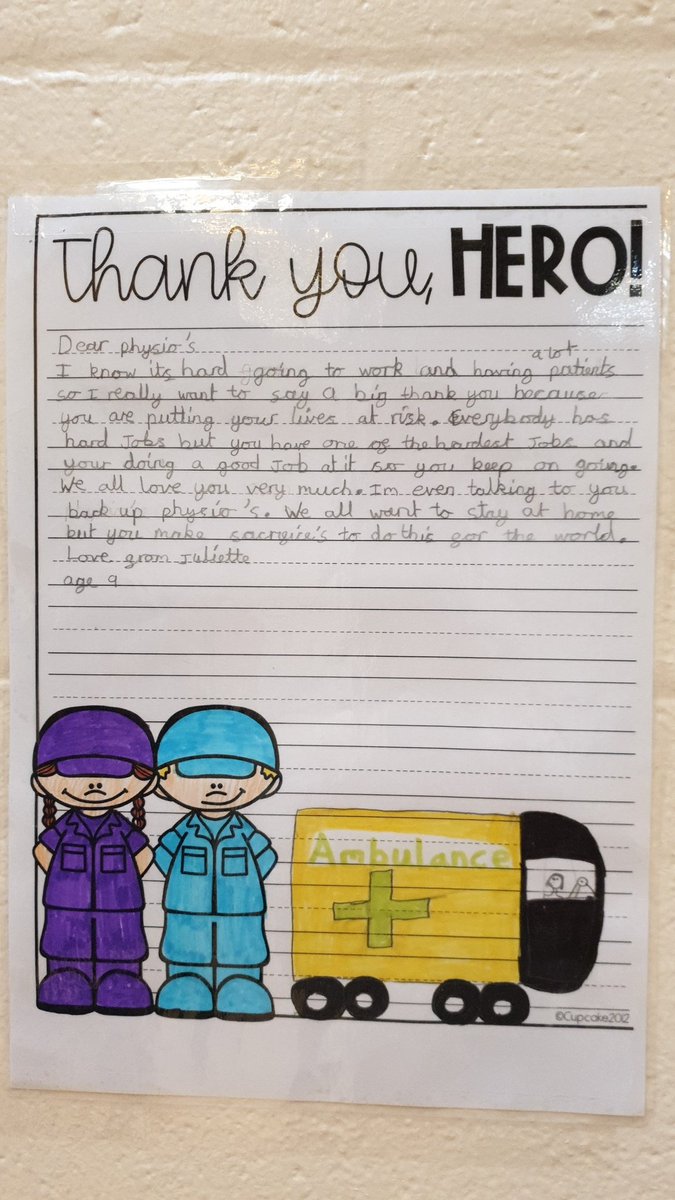 Thank you, HERO!
Dear physio's
a lot
I know its hard going to work and having patients
so I really want to say a big thank you because
you are putting your lives at risk. Everybody has
hard Jobs but you have one of the hardest Jobs and
your doing a good Job at it so you keep on going.
We all love you very much. Im even talking to you
back up physio's. We all want to stay at home
but you make sacrifice's to do this for the world.
Love from Juliette
age 9
Ambulance
©Cupcake2012